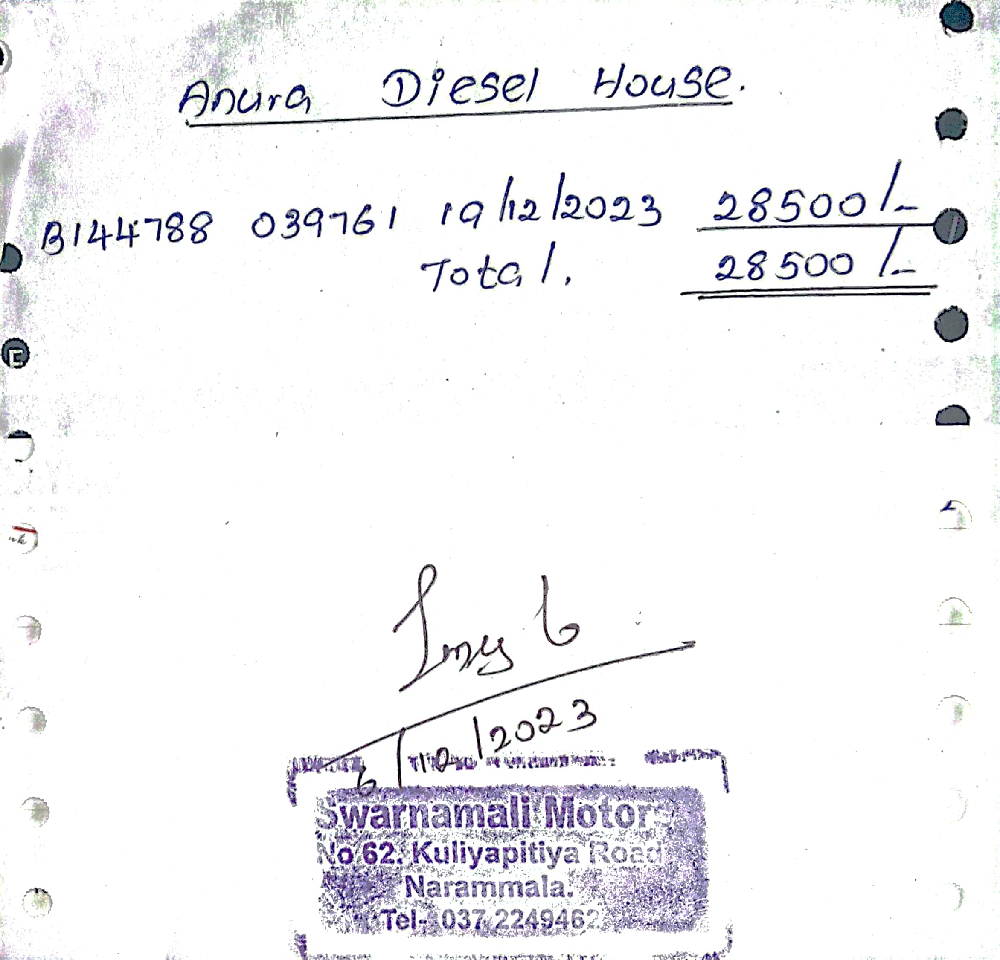 Anura Diesel House.
B144788 039761 19/12/2023 28500/-
Total. 28500/-
6/12/2023
Swarnamali Motors
No 62. Kuliyapitiya Road
Narammala.
Tel- 037 2249462